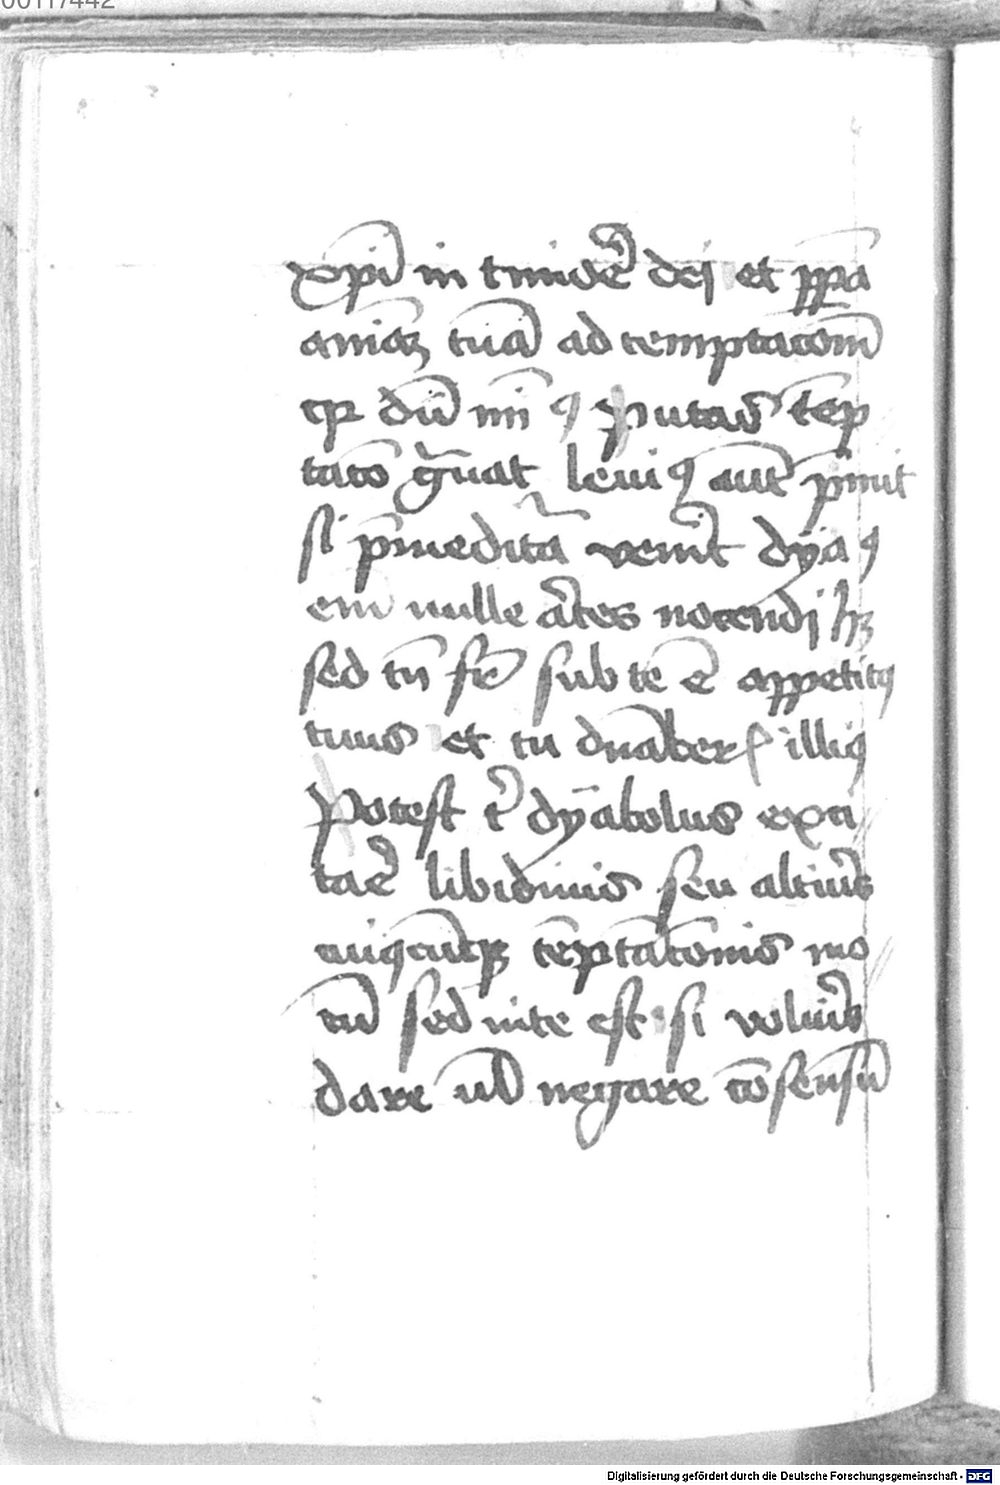 00117442
xp̄i in timōe dei et p̲p̲a
aniaʒ tuā ad temptacōm̄
q̄ꝛ dū mī ꝯ putas tēp
tatō gͣuat leuiꝰ aūt p̄mit
si p̄meditͣa venīt dyaꝰ
em̄ mille ar̄tes nocendi hʒ
sed tn̄ sr̄ sub te ē appetitꝰ
tuus et tu dn̄aber͛ illiꝰ
Potest tͥ dyabolus exci
tar̄e libidinis seu altiuꝰ
cuiꝰcūqʒ tēptatōnis mo
tū sed in te est si voluīs
dare ul̄ negare cōsensū
Digitalisierung gefördert durch die Deutsche Forschungsgemeinschaft - DFG